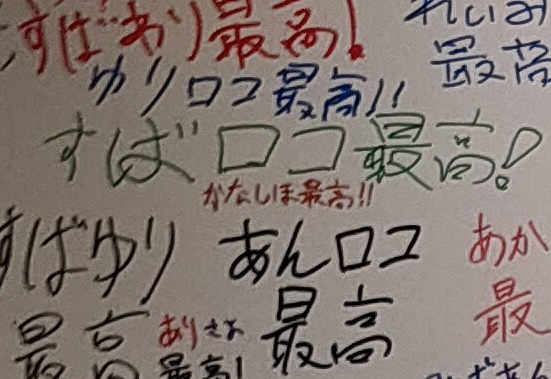 すばあり最高!
れいみ
最高
ゆりロコ最高!!
すばロコ最高!
かなしほ最高!!
すばゆり
最高
あんロコ
最高
あか
最
ありさな
最高!